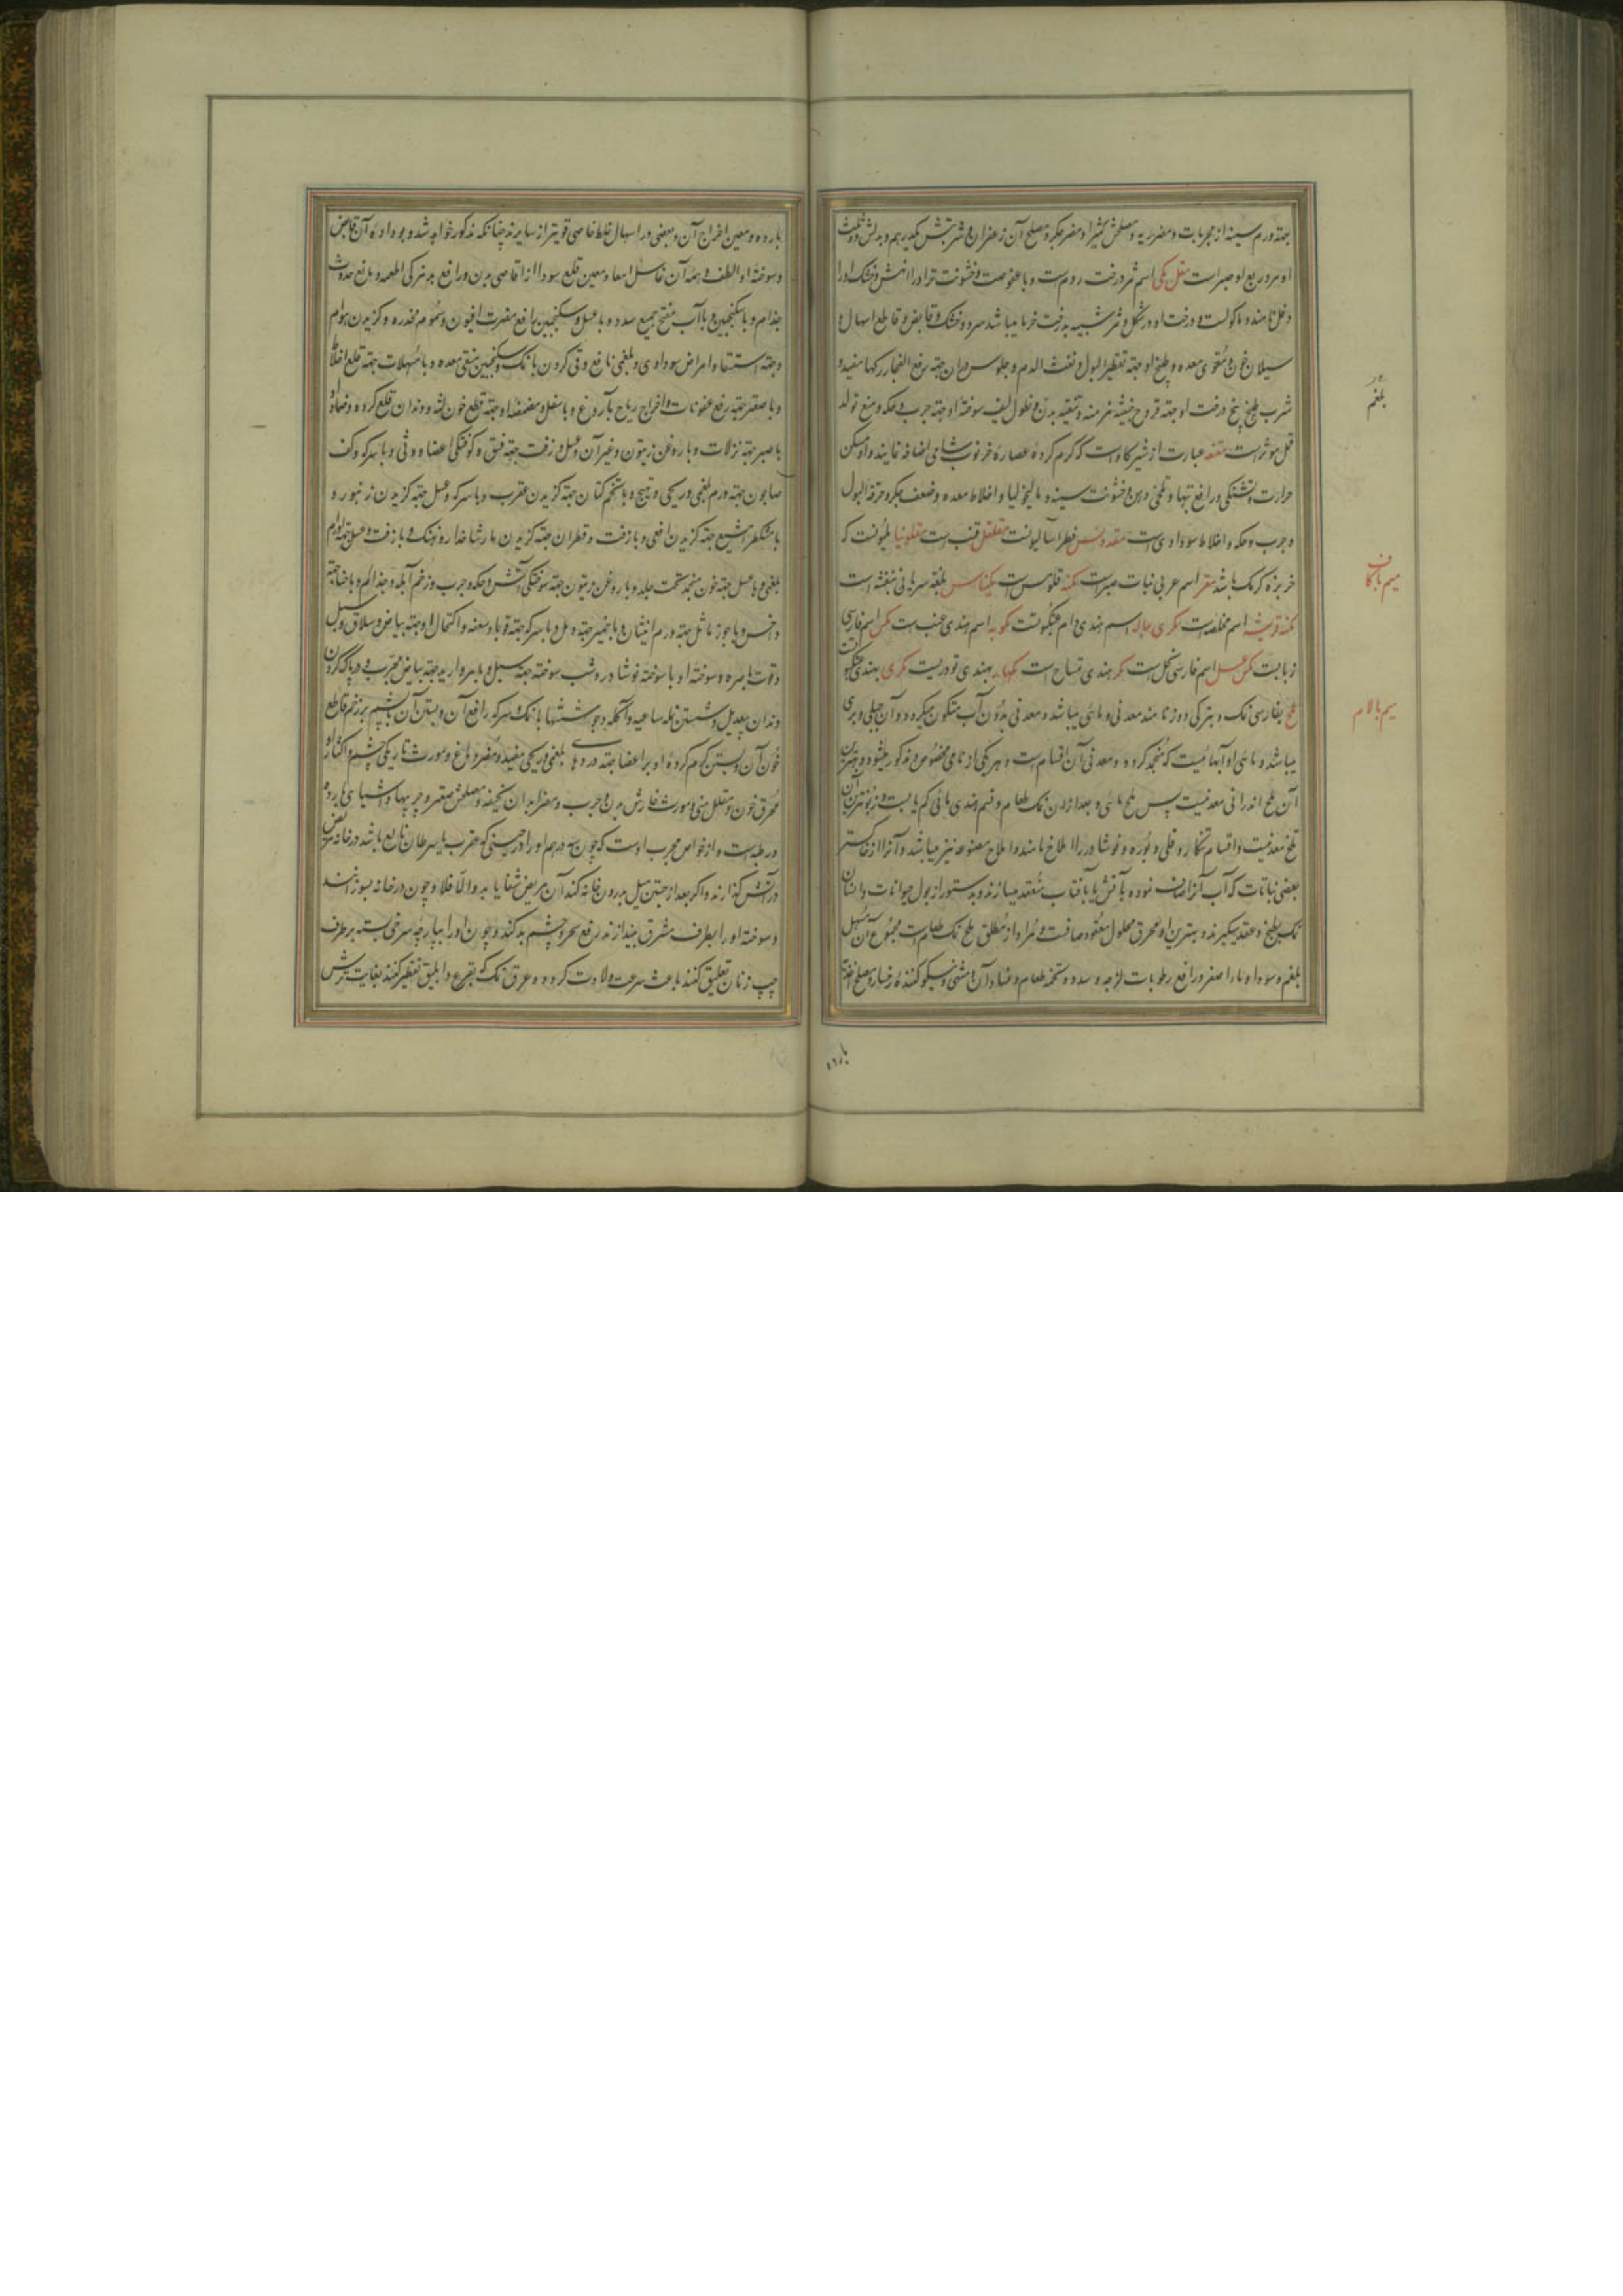 جهته ورم سینه از مجربات و مضر ریه و مصلحش کثیرا و مضر جگر و مصلح آن زعفران و شربتش یکدرهم و بدلش دو ثلث
او مر و ربع او صبر است مقل مکی اسم ثمر درخت دوم است و با عفوصت و خشونت تر او را نهش و خشک او را
وقل نامند و ماکولست و درخت او در شکل و ثمر شبیه بدرخت خرما میباشد سرد و خشک و قابض و قاطع اسهال و
سیلان خون و مقوی معده و طبیخ او جهته تقطیر البول و نفث الدم و جلوس در ان جهته رفع انفجار رکها مفید و
شرب طبیخ بیخ درخت او جهته قروح خبیثه مزمنه و تنقیه بدن و نطول لیف سوخته او جهته جرب و حکه و منع تولد
قمل موثر است مقنعه عبارت از شیر کاوست که کرم کرده عصاره خرنوب شامی اضافه نمایند و او مسکن
حرارت و تشنکی و رافع تبها و تلخی دهن و خشونت سینه و مالیخولیا و اخلاط معده و ضعف جکر و حرقة البول
و جرب و حکه و اخلاط سوداوی است مقدونس فطراسالیونست مقلقل قنب است مقلونیا ملیونست که
خربزه کرمک باشد مقر اسم عربی نبات صبر است مکنه قلومس است مکناس بلغة سریانی بنفشه است
مکنه قریشه اسم مخلصه است مکری جاله اسم هندی دام عنکبوتست مکویه اسم هندی عنب است مکس اسم فارسی
زبابست مکس عسل اسم فارسی نحل است مکر بهندی تمساح است مکهانه بهندی تودریست مکری بهندی عنکبوتست
ملح بفارسی نمک و بترکی دوز نامند معدنی و مائی میباشد و معدنی بدون آب متکون میکردد و آن جبلی و بری
میباشد و مائی او آبهائیست که منجمد کردد و معدنی آن اقسام است و هر یکی از نامی مخصوص و مذکور میشود و بهترین
آن ملح اندرانی معدنیست پس ملح مائی و بعد از ان نمک طعام و قسم هندی مائی کم یابست و زبونترین آن
تلخ معدنیست و اقسام تنکار و قلی و بوره و نوشادر را املاح نامند و املاح مصنوعه نیز میباشد و آنرا از خاکستر
بعضی نباتات که آب آنرا صاف نموده بآتش یا بآفتاب منعقد میسازند و بدستور از بول حیوانات و انسان
نمک بطبخ و عقد میکیرند و بهترین او محرق محلول معقود صافست و مراد از مطلق ملح نمک طعام است مجموع آن مسهل
بلغم و سودا و ماء اصفر و رافع رطوبات لزجه و سدد و تخمه طعام و فساد آن و مشهی و نیکو کننده رخسار و مصلح اغذیه
بلغم
میم باکاف
میم بالام
بارده
بارده و معین اخراج آن و بعضی در اسهال خلط خاصی قویتر از سایرند چنانکه مذکور خواهد شد و بوداده آن قابض
و سوخته او الطف و همه آن غاسل امعا و معین قلع سودا از اقاصی بدن و رافع بدبزکی اطعمه و مانع حدوث
جذام و با سکنجبین و با آب مفتح جمیع سدد و با عسل و سکنجبین رافع مضرت افیون و سموم مخدره و کزیدن هوام
و جهته استسقا و امراض سوداوی و بلغمی نافع و قی کردن با نمک و سکنجبین منقی معده و با مسهلات جهته قلع اخلاط
و با صعتر جهته رفع عفونات و اخراج ریاح بآروغ و باسفل و مضمضه او جهته قطع خون لثه و دندان قلع کرده و ضماد او
با صبر جهته نزلات و با روغن زیتون و غیر آن و عسل و زفت جهته فتق و کوفتکی اعضا و وثی و با سرکه و کف
صابون جهته ورم بلغمی و ریحی و تهبج و با تخم کتان جهته کزیدن عقرب و با سرکه و عسل جهته کزیدن زنبور و
با مشکطرامشیع جهته کزیدن افعی و با زفت و قطران جهته کزیدن مار شاخدار و نهنک و با زفت و عسل جهته اورام
بلغمی و با عسل جهته خون منجمد تحت جلد و با روغن زیتون جهته سوختکی آتش و حکه و جرب و زخم آبله و جذام و با حنا جهته
داخس و با جوز ماثل جهته ورم انثیان و با خمیر جهته دمل و با سرکه جهته قوبا و سعفه و اکتحال او جهته بیاض و سلاق و سبل
و قوت باصره و سوخته او با سوخته نوشادر و شب سوخته جهته سبل و با مروارید جهته بیاض مجرب و در پاک کردن
دندان بیعدیل و شستن نمله ساعیه و آکله و جوششها با نمک و سرکه رافع آن و بستن آن با پشم بر زخم قاطع
خون آن و بستن کرم کرده او بر اعضا جهته دردهای بلغمی و ریحی مفید و مضر دماغ و مورث تاریکی چشم و اکثار او
محرق خون و مقلل منی و مورث خارش بدن و جرب و مضر ابدان نحیفه و مصلحش صعتر و چربیها و اشیای بارده
و رطبه است و از خواص مجرب اوست که چون سه درهم او را در حینی که عقرب یا سرطان طالع باشد در خانه مریض
در آتش کذارند و اکر بعد از جستن میل بدرون خانه کند آن مریض شفا یابد و الا فلا و چون در خانه بسوزانند
و سوخته او را بطرف مشرق بیندازند رفع سحر و چشم بد کند و چون او را بپارچه سرخی بسته بر طرف
چپ زنان تعلیق کنند باعث سرعت ولادت کردد و عرق نمک که بقرع و انبیق تقطیر کنند بغایت ترش